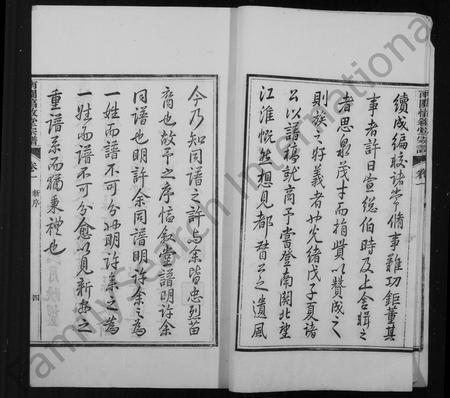 續成編敘諸峕脩事難功鉅董其
事者許日萱総伯時及上舍輯之
者思泉茂才而捐貲以贊成之
則族之好義者也光緒戊子夏諸
公以譜稿就商予嘗登南関北望
江淮慨然想見都督公之遺風
今乃知同譜之許與余皆忠烈苗
裔也故予之序惇敘堂譜明許余
同譜也明許余同譜明許余之為
一姓而譜不可分也明許余之為
一姓而譜不可分愈以見新安之
重譜系而猶秉禮也
新序
四
FamilySearch International